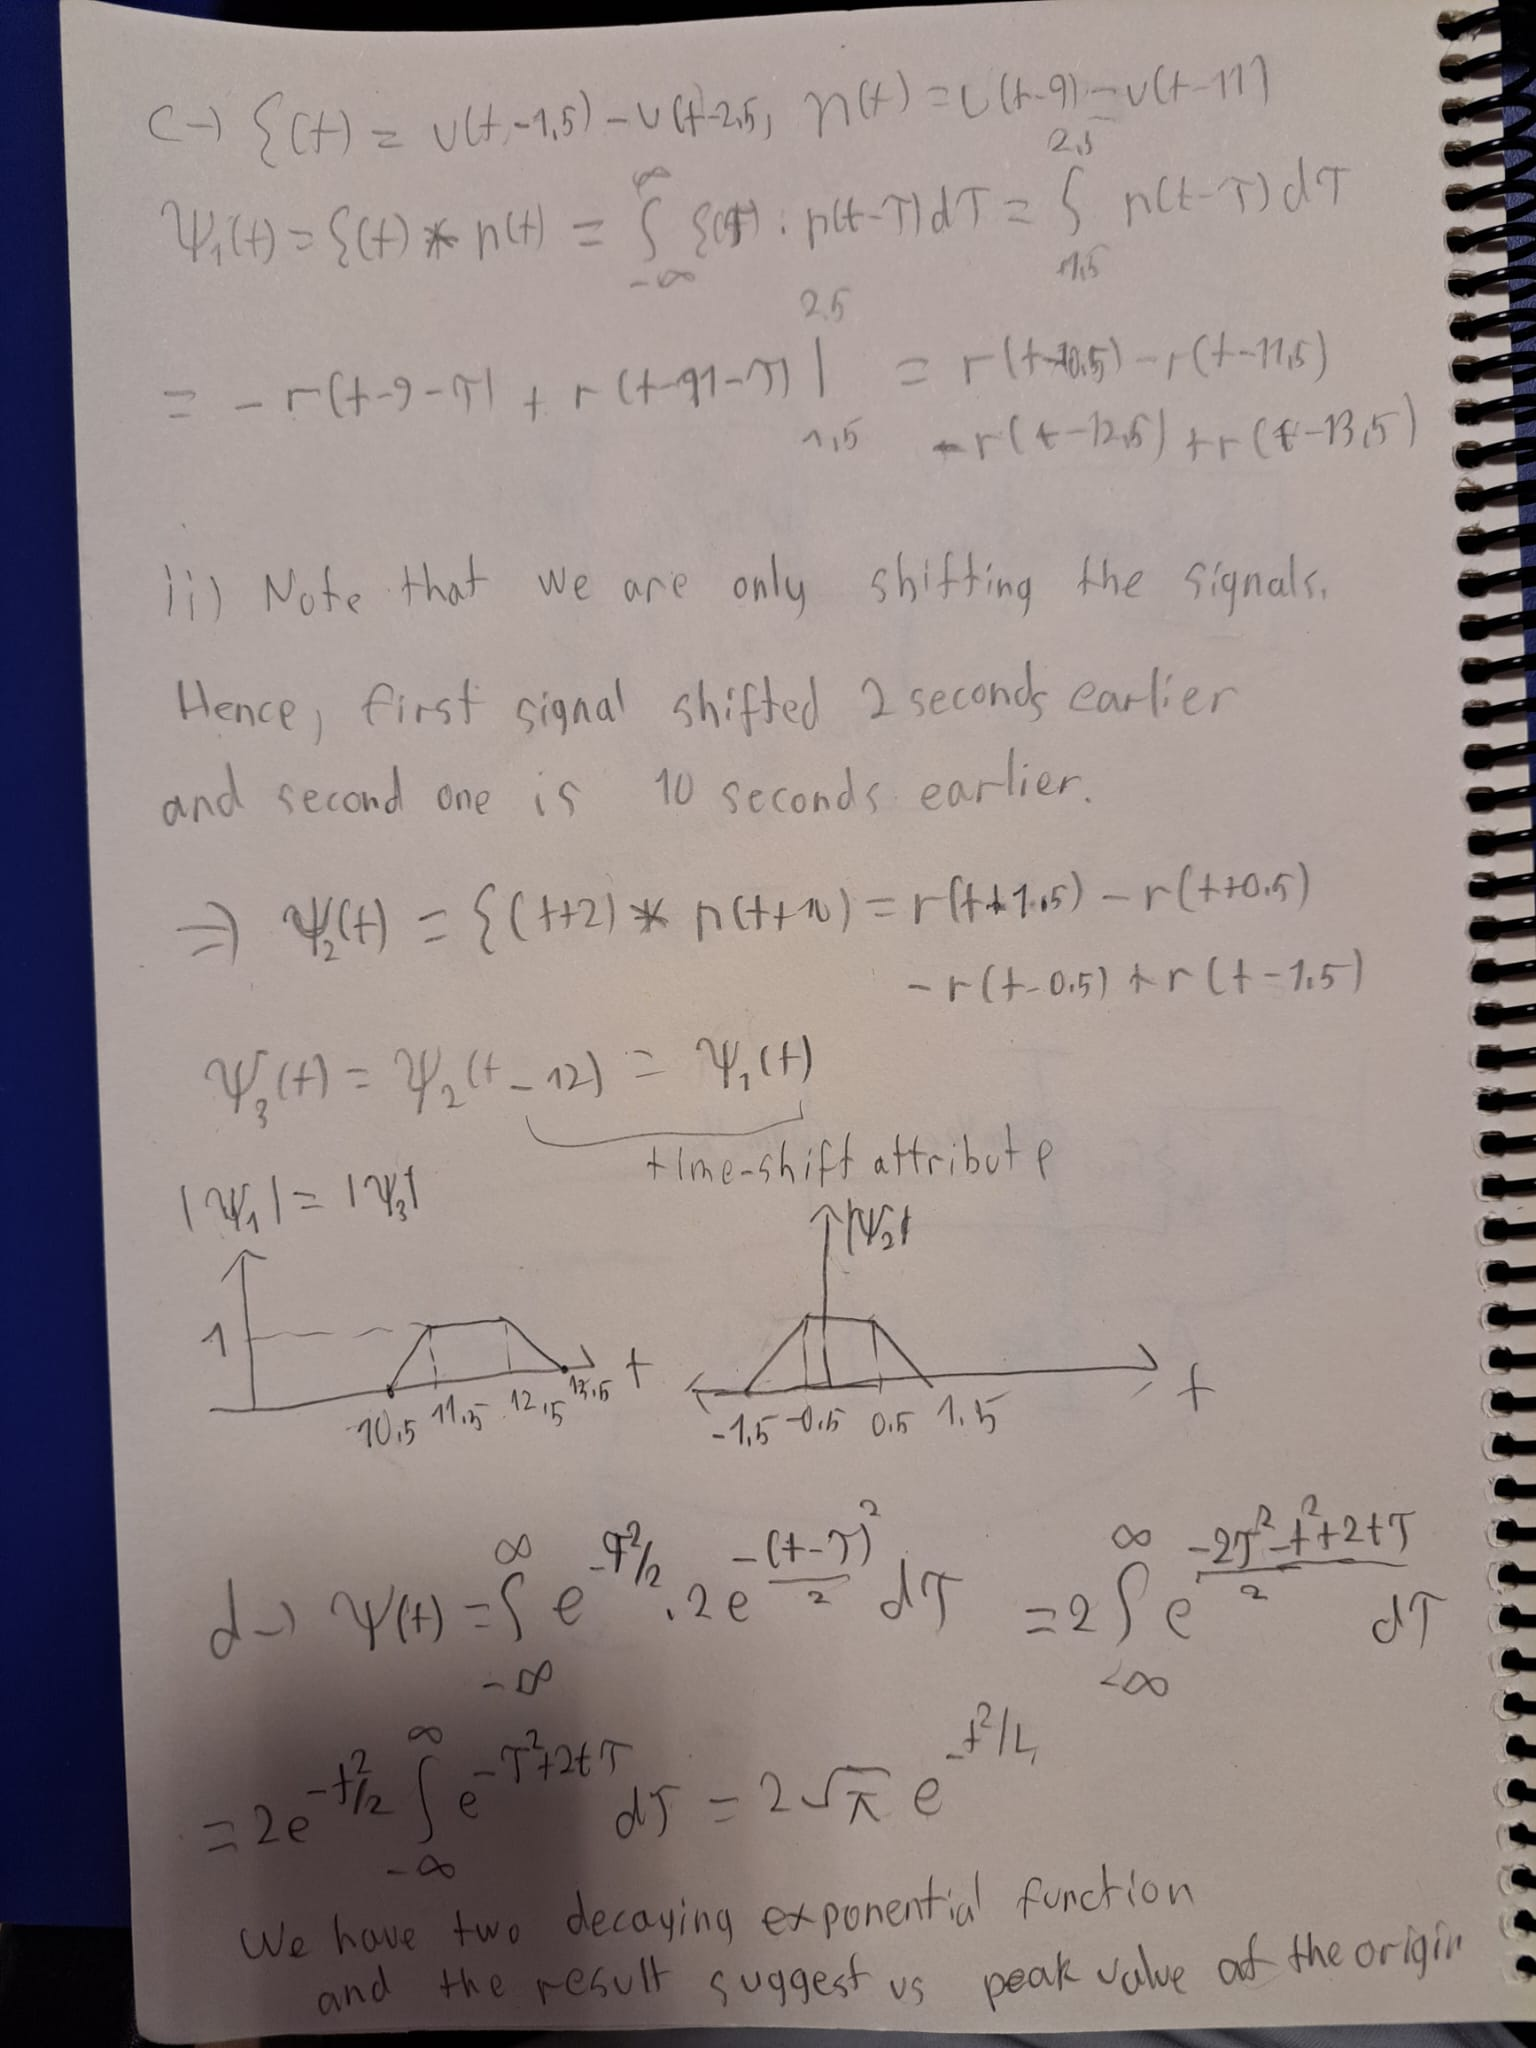 c→ ξ(t) = u(t-1,5) - u(t-2,5, n(t) = u(t-9) - u(t-11)
Ψ₁(t) = ξ(t) * n(t) = ∫_{-∞}^{∞} ξ(τ) . n(t-τ) dτ = ∫_{1,5}^{2,5} n(t-τ) dτ
= - r(t-9-τ) + r(t-11-τ) |_{1,5}^{2.5} = r(t-10.5) - r(t-11,5)
- r(t-12,5) + r(t-13,5)
ii) Note that we are only shifting the signals.
Hence, first signal shifted 2 seconds earlier
and second one is 10 seconds earlier.
⇒ Ψ₂(t) = ξ(t+2) * n(t+10) = r(t+1.5) - r(t+0.5)
- r(t-0.5) + r(t-1.5)
Ψ₃(t) = Ψ₂(t-12) = Ψ₁(t)
time-shift attribute
|Ψ₁| = |Ψ₃|
|Ψ₂|
1
t
t
10,5 11,5 12,5 13,5
-1,5 -0.5 0.5 1.5
d→ Ψ(t) = ∫_{-∞}^{∞} e^{-τ²/2} . 2e^{-(t-τ)²/2} dτ = 2 ∫_{-∞}^{∞} e^{(-2τ²-t²+2tτ)/2} dτ
= 2e^{-t²/2} ∫_{-∞}^{∞} e^{-τ²+2tτ} dτ = 2√π e^{-t²/4}
We have two decaying exponential function
and the result suggest us peak value at the origin